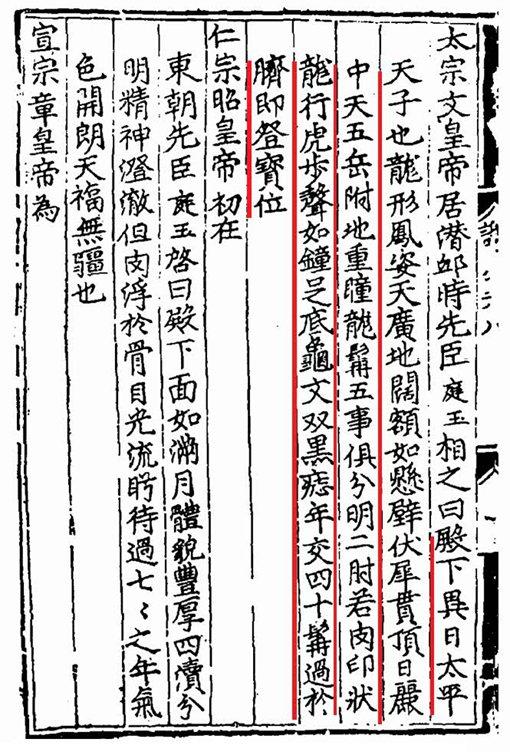 太宗文皇帝居潛邸時先臣庭玉相之曰殿下異日太平
天子也龍形鳳姿天廣地闊額如懸壁伏犀貫頂日麗
中天五岳附地重瞳龍髯五事俱分明二肘若肉印狀
龍行虎步聲如鐘足底龜文双黑痣年交四十髯過於
臍即登寳位
仁宗昭皇帝初在
東朝先臣庭玉啓曰殿下面如滿月體貌豐厚四瀆分
明精神澄澈但肉浮於骨目光流眄待過七〻之年氣
色開朗天福無疆也
宣宗章皇帝為